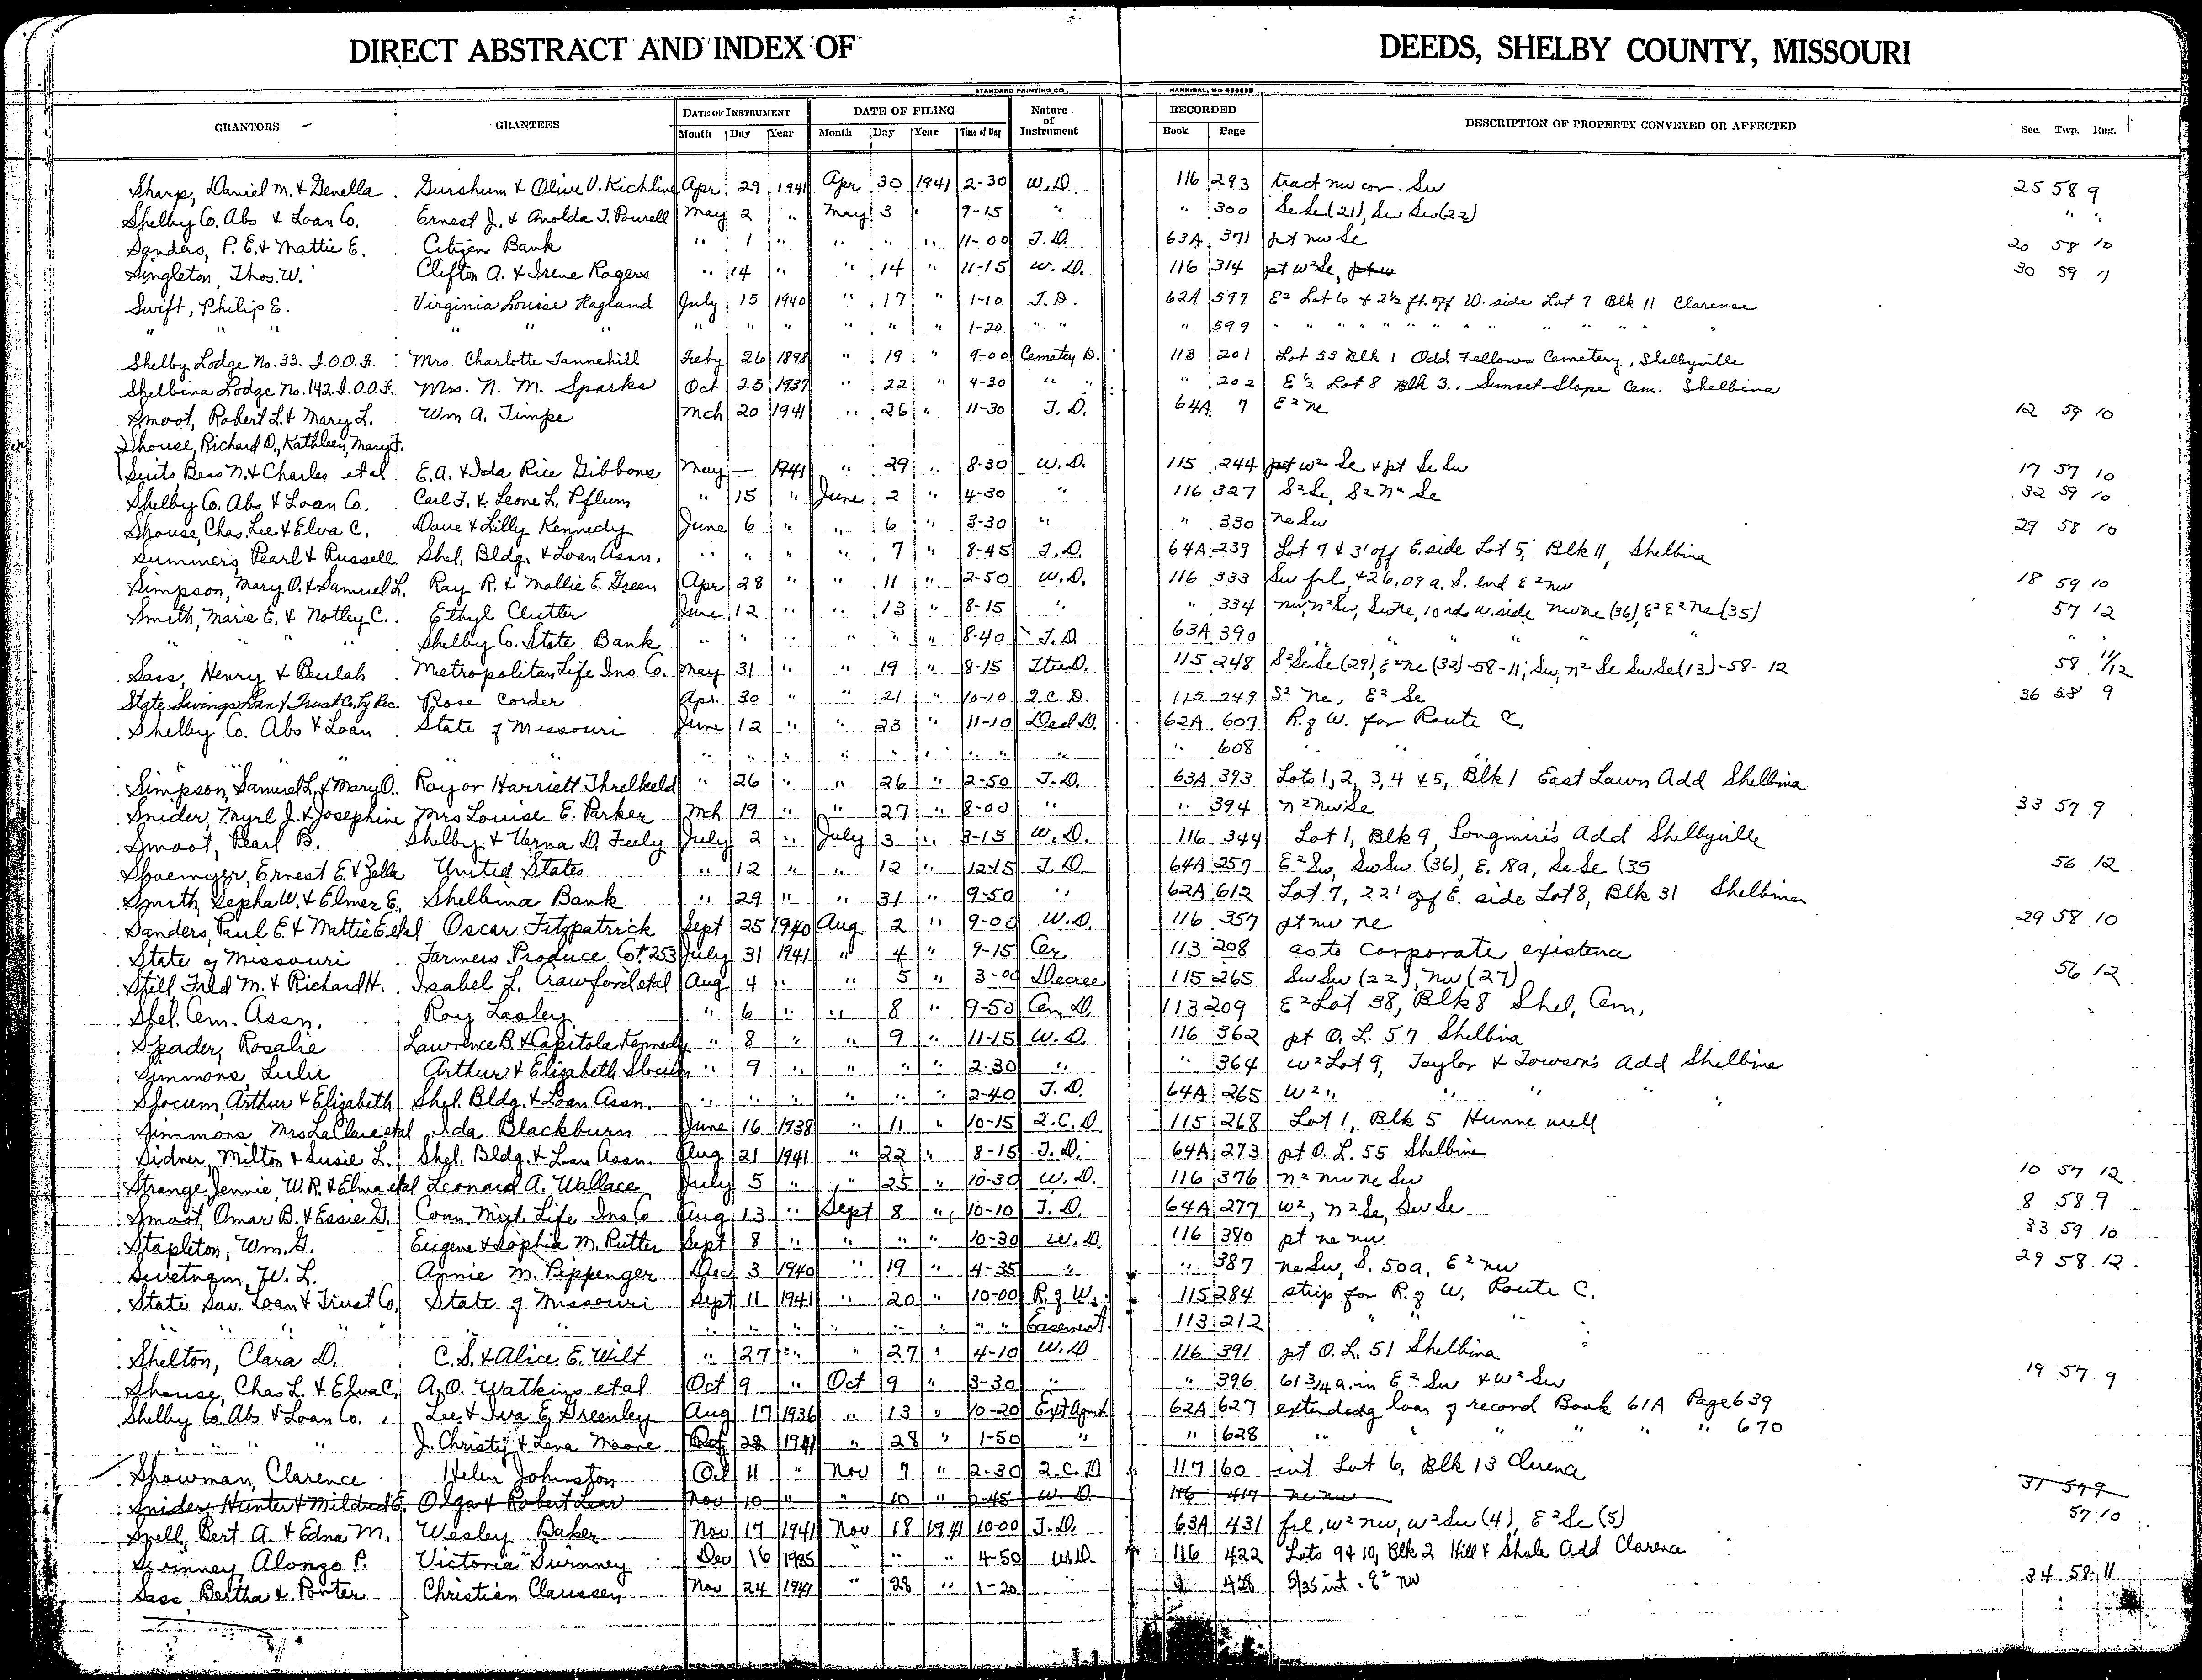 DIRECT ABSTRACT AND INDEX OF DEEDS, SHELBY COUNTY, MISSOURI
STANDARD PRINTING CO., HANNIBAL, MO
GRANTORS GRANTEES DATE OF INSTRUMENT DATE OF FILING Nature of Instrument RECORDED DESCRIPTION OF PROPERTY CONVEYED OR AFFECTED Sec. Twp. Rng.
Month Day Year Month Day Year Time of Day Book Page
Sharp, Daniel M. & Genella Gurshum & Olive V. Kichline Apr 29 1941 Apr 30 1941 2-30 W.D. 116 293 tract nw cor. Sw 25 58 9
Shelby Co. Abs & Loan Co. Ernest J. & Anolda T. Powell May 2 " May 3 " 9-15 " " 300 Se Se (21), Sw Sw (22) " "
Sanders, P. E. & Mattie E. Citizen Bank " 1 " " " " 11-00 T.D. 63A 371 pt nw Se 20 58 10
Singleton, Thos. W. Clifton A. & Irene Rogers " 14 " " 14 " 11-15 W.D. 116 314 pt w² Se, pt w 30 59 11
Swift, Philip E. Virginia Louise Hagland July 15 1940 " 17 " 1-10 T.D. 62A 597 E² Lot 6 & 2½ ft. off W. side Lot 7 Blk 11 Clarence
" " " " " " " " " " " " 1-20 " " " 599 " " " " " " " " " " " "
Shelby Lodge No. 33. I.O.O.F. Mrs. Charlotte Tannehill Feby 26 1898 " 19 " 9-00 Cemetey D. 113 201 Lot 53 Blk 1 Odd Fellows Cemetery, Shelbyville
Shelbina Lodge No. 142. I.O.O.F. Mrs. N. M. Sparks Oct 25 1937 " 22 " 4-30 " " " 202 E½ Lot 8 Blk 3., Sunset Slope Cem. Shelbina
Smoot, Robert L. & Mary L. Wm A. Timpe Mch 20 1941 " 26 " 11-30 T.D. 64A 7 E² ne 12 59 10
Shouse, Richard D., Kathleen, Mary F.
Suits, Bess N. & Charles et al E.A. & Ida Rice Gibbons May — 1941 " 29 " 8-30 W.D. 115 244 pt w² Se & pt Se Sw 17 57 10
Shelby Co. Abs & Loan Co. Carl F. & Leone L. Pflum " 15 " June 2 " 4-30 " 116 327 S² Se, S² n² Se 32 59 10
Shouse, Chas. Lee & Elva C. Dave & Lilly Kennedy June 6 " " 6 " 3-30 " " 330 ne Sw 29 58 10
Summers, Pearl & Russell Shel. Bldg. & Loan Assn. " " " " 7 " 8-45 T.D. 64A 239 Lot 7 & 3' off E. side Lot 5, Blk 11, Shelbina
Simpson, Mary O. & Samuel L. Ray R. & Mollie E. Green Apr 28 " " 11 " 2-50 W.D. 116 333 Sw frl, & 26.09 a. S. end E² nw 18 59 10
Smith, Marie E. & Notley C. Ethyl Clutter June 12 " " 13 " 8-15 " " 334 nw, n² Sw, Sw ne, 10 rds w. side nw ne (36), E² E² ne (35) 57 12
" " " " Shelby Co. State Bank " " " " " " 8-40 T.D. 63A 390 " " " " " " "
Sass, Henry & Beulah Metropolitan Life Ins Co. May 31 " " 19 " 8-15 Ttee D. 115 248 S² Se Se (29), E² ne (32)-58-11; Sw, n² Se Sw Se (13)-58-12 58 11/12
State Savings Loan & Trust Co. by Rec. Rose Corder Apr. 30 " " 21 " 10-10 Q.C.D. 115 249 S² Ne, E² Se 36 58 9
Shelby Co. Abs & Loan State of Missouri June 12 " " 23 " 11-10 Ded D. 62A 607 R. of W. for Route C.
" " " " " " " " " " " " " 608 " " "
Simpson, Samuel L. & Mary O. Ray or Harriett Threlkeld " 26 " " 26 " 2-50 T.D. 63A 393 Lots 1, 2, 3, 4 & 5, Blk 1 East Lawn Add Shelbina
Snider, Myrl J. & Josephine Mrs Louise E. Parker Mch 19 " " 27 " 8-00 " " 394 n² nw Se 33 57 9
Smoot, Pearl B. Shelby & Verna D. Feely July 2 " July 3 " 3-15 W.D. 116 344 Lot 1, Blk 9, Longmire's Add Shelbyville
Shoemyer, Ernest E. & Zella United States " 12 " " 12 " 12-15 T.D. 64A 257 E² Sw, Sw Sw (36), E. 18a, Se Se (35 56 12
Smith, Sepha W. & Elmer E. Shelbina Bank " 29 " " 31 " 9-50 " 62A 612 Lot 7, 22' off E. side Lot 8, Blk 31 Shelbina
Sanders, Paul E. & Mattie E. et al Oscar Fitzpatrick Sept 25 1940 Aug 2 " 9-00 W.D. 116 357 pt nw ne 29 58 10
State of Missouri Farmers Produce Co. # 253 July 31 1941 " 4 " 9-15 Cer 113 208 as to corporate existence
Still Fred M. & Richard H. Isabel L. Crawford et al Aug 4 " " 5 " 3-00 Decree 115 265 Sw Sw (22), nw (27) 56 12
Shel. Cem. Assn. Roy Lasley " 6 " " 8 " 9-50 Cem D. 113 209 E² Lot 38, Blk 8 Shel. Cem.
Spader, Rosalie Lawrence B. & Capitola Kennedy " 8 " " 9 " 11-15 W.D. 116 362 pt O. L. 57 Shelbina
Simmons, Lulie Arthur & Elizabeth Slocum " 9 " " " " 2-30 " " 364 w² Lot 9, Taylor & Towson's Add Shelbina
Slocum, Arthur & Elizabeth Shel. Bldg. & Loan Assn. " " " " " " 2-40 T.D. 64A 265 W² " " " " "
Simmons, Mrs La Clare et al Ida Blackburn June 16 1938 " 11 " 10-15 Q.C.D. 115 268 Lot 1, Blk 5 Hunnewell
Sidner, Milton & Susie L. Shel. Bldg. & Loan Assn. Aug 21 1941 " 22 " 8-15 T.D. 64A 273 pt O. L. 55 Shelbina
Strange, Jennie, W. R. & Elma et al Leonard A. Wallace July 5 " " 25 " 10-30 W.D. 116 376 n² nw ne Sw 10 57 12
Smoot, Omar B. & Essie G. Conn. Mut. Life Ins Co Aug 13 " Sept 8 " 10-10 T.D. 64A 277 W², n² Se, Sw Se 8 58 9
Stapleton, Wm. G. Eugene & Sophia M. Rutter Sept 8 " " " " 10-30 W.D. 116 380 pt ne nw 33 59 10
Swetnam, W. L. Annie M. Peppenger Dec 3 1940 " 19 " 4-35 " " 387 ne Sw, S. 50a, E² nw 29 58 12
State Sav. Loan & Trust Co. State of Missouri Sept 11 1941 " 20 " 10-00 R. of W. 115 284 strip for R. of W. Route C.
" " " " " " " " " " " " " Easement 113 212 " " "
Shelton, Clara D. C. S. & Alice E. Wilt " 27 " " 27 " 4-10 W.D 116 391 pt O. L. 51 Shelbina
Shouse, Chas L. & Elva C. A. O. Watkins et al Oct 9 " Oct 9 " 3-30 " " 396 61 3/4 a. in E² Sw & w² Sw 19 57 9
Shelby Co. Abs & Loan Co. Lee & Iva E. Greenley Aug 17 1936 " 13 " 10-20 Ext Agmt. 62A 627 extending loan of record Book 61A Page 639
" " " J. Christy & Lena Moore Oct 28 1941 " 28 " 1-50 " " 628 " " " " " 670
Showman, Clarence Helen Johnston Oct 11 " Nov 7 " 2-30 Q.C.D 117 60 int Lot 6, Blk 13 Clarence
Snider, Hunter & Mildred E. Olga & Robert Lear Nov 10 " " 10 " 2-45 W.D. 116 417 ne nw 31 57 9
Snell, Bert A. & Edna M. Wesley Baker Nov 17 1941 Nov 18 1941 10-00 T.D. 63A 431 frl. w² nw, w² Sw (4), E² Se (5) 57 10
Swinney, Alonzo P. Victoria Swinney Dec 16 1935 " " " 4-50 W.D. 116 422 Lots 9 & 10, Blk 2 Hill & Shale Add Clarence
Sass, Bertha & Porter Christian Claussen Nov 24 1941 " 28 " 1-20 " " 428 5/35 int. E² nw 34 58 11